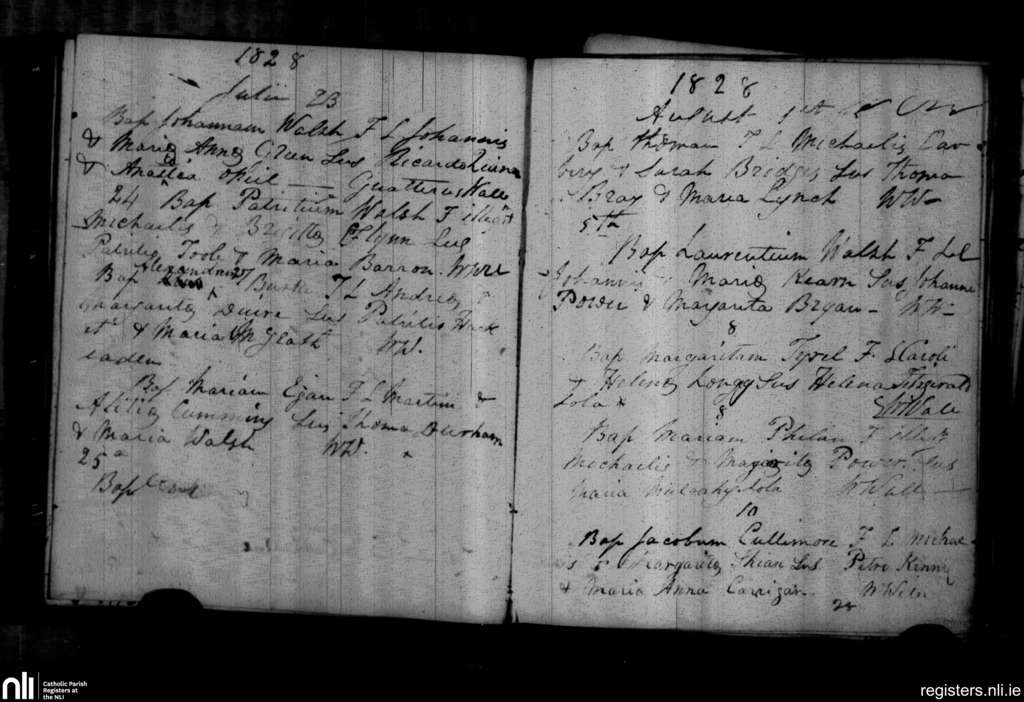 1828
Julii 23
Bap Johannam Walsh F L Johannis
& Maria Anna Green Sus Ricardo
& Anastia Gualterus Wall
24 Bap Patritium Walsh F illegit
Michaelis & Brigitta Flynn Sus
Patritis Toole & Maria Barron. WW
Bap Alexandrum Burke F L Andrea &
Margarita Sus Patritis Hack
et & Maria McGrath WW.
eadem
Bap Mariam Egan F L Martini &
Alitia Cummins Sus Thoma Durham
& Maria Walsh WW.
25
Bap
1828
August 1st
Bap Thomam F L Michaelis Car
bery & Sarah Bridges Sus Thoma
Bray & Maria Lynch WW
5th
Bap Laurentium Walsh F L
Johannis & Maria Kearn Sus Johanne
Power & Margarita Bryan - WW
8
Bap Margaritam F L Caroli
& Helena Longy Sus Helena Fitzgerald
Sola WWall
8
Bap Mariam Phelan F illeg
Michaelis & Margarita Power. Sus
Maria Mulcahy Sola WWall
10
Bap Jacobum Cullimore F L Michae
is & Margarita Sus Petro Kinny
& Maria Anna Carrigan
28
nli
Catholic Parish
Registers at
the NLI
registers.nli.ie